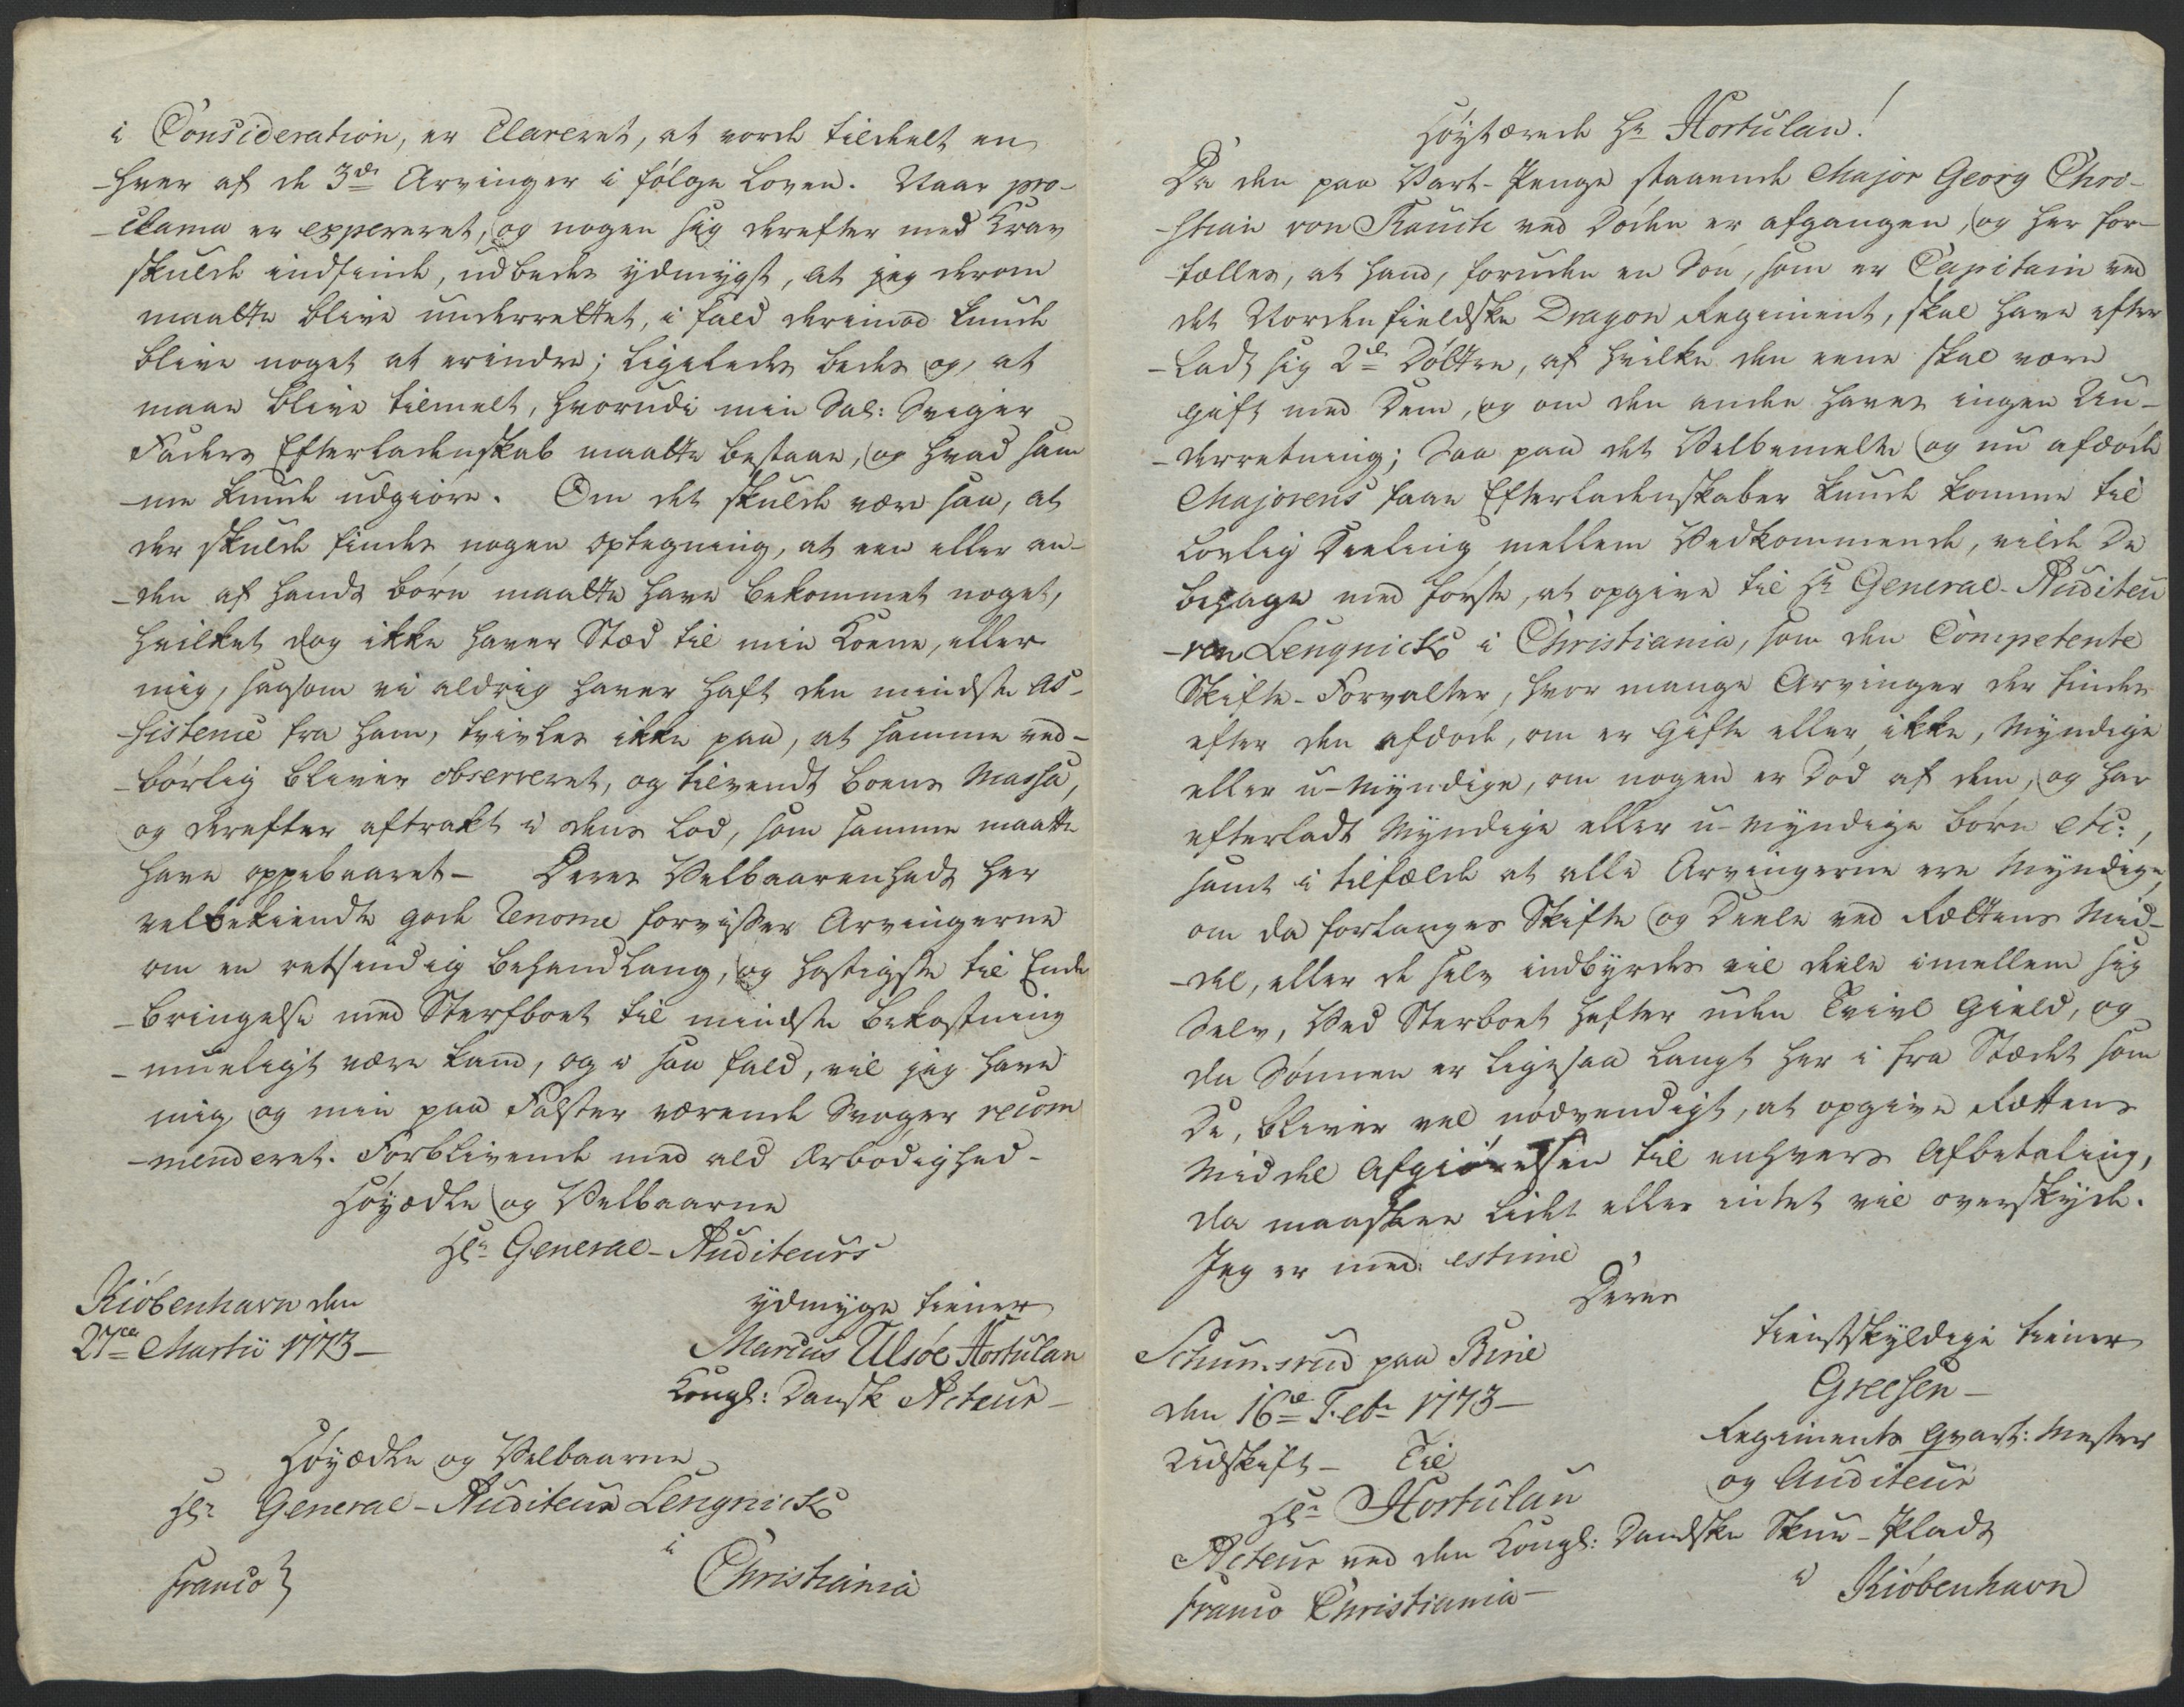 i Consideration, er Clareret, at vorde tildeelt en
-hver af de 3de Arvinger i følge Loven. Naar pro-
-clama er expereret, og nogen sig derefter med Krav
skulde indfinde, udbedes ydmygst, at jeg derom
maatte blive underrettet, i fald derimod kunde
blive noget at erindre; ligeledes bedes og, at
maae blive tilmelt, hvorudi min Sal: Sviger
Faders Efterladenskab maatte bestaae, og hvad sam
-me kunde udgiøre. Om det skulde være saa, at
der skulde findes nogen optegning, at een eller an-
-den af hands børn maatte have bekommet noget,
hvilket dog ikke haver Stæd til min Koene, eller
mig, saasom vi aldrig haver haft den mindste As-
-sistence fra ham, tvivles ikke paa, at samme ved-
-børlig bliver observeret, og tilvendt boens Massa,
og derefter aftrakt i dens Lod, som samme maatte
have oppebaaret- Deres Velbaarenheds her
velbekiendte gode Renome forvisser Arvingerne
om en retsindig behandlang, og hastigste til Ende
-bringelse med Sterfboet til mindste bekostning
-mueligt være kand, og i saa fald, vil jeg have
mig, og min paa Falster værende Svoger recom
-menderet. Forblivende med ald Ærbødighed-
Høyædle og Velbaarne
Hr. General-Auditeurs
Kiøbenhavn den
27de Martii 1773-
ydmyge tiener
Marcus Ulsøe Hortulan
Kongl: Dansk Acteur-
Høyædle og Velbaarne
Hr. General-Auditeur Lengnick
i
franco
Christiania
Høystærede Hr. Hortulan!
Da den paa Vart-Penge staaende Major Georg Chri-
-stian von Rauch ved Døden er afgangen, og her for-
-tælles, at hand, foruden en Søn, som er Capitain ved
det Nordenfieldske Dragon Regiment, skal have efter
-ladt sig 2de Døttre, af hvilke den eene skal være
gift med Dem, og om den anden haves ingen Un-
-derretning; Saa paa det Velbemelte og nu afdøde
Majorens faae Efterladenskaber kunde komme til
Lovlig Deeling mellem Vedkommende, vilde De
behage med første, at opgive til Hr. General-Auditeu
-ren Lengnick i Christiania, som den Competente
Skifte-Forvalter, hvor mange Arvinger der findes
efter den afdøde, om er Gifte eller ikke, Myndige
eller u-Myndige, om nogen er Død af dem, og har
efterladt Myndige eller u-myndige børn etc:,
samt i tilfælde at alle Arvingerne ere Myndige,
om da forlanges Skifte og Deele ved Rættens Mid-
-del, eller de selv indbyrdes vil deele imellem sig
Selv, Ved Sterboet hefter uden Tvivl Gield, og
da Sønnen er ligesaa langt her i fra Stædet som
De, bliver vel nødvendigt, at opgive Rættens
Middel Afgiørelsen til enhvers Afbetaling,
da maaskee lidet eller intet vil overskyde.
Jeg er med estime
Deres
tienstskyldige tiener
Schumsrud paa Rine
den 16de Febr 1773-
Greesen-
Regiments Qvart: Mester
og Auditeur
Udskrift- Til
Hr. Hortulan
Acteur ved den Kongl: Dandske Skue-Plads
i Kiøbenhavn
franco Christiania-